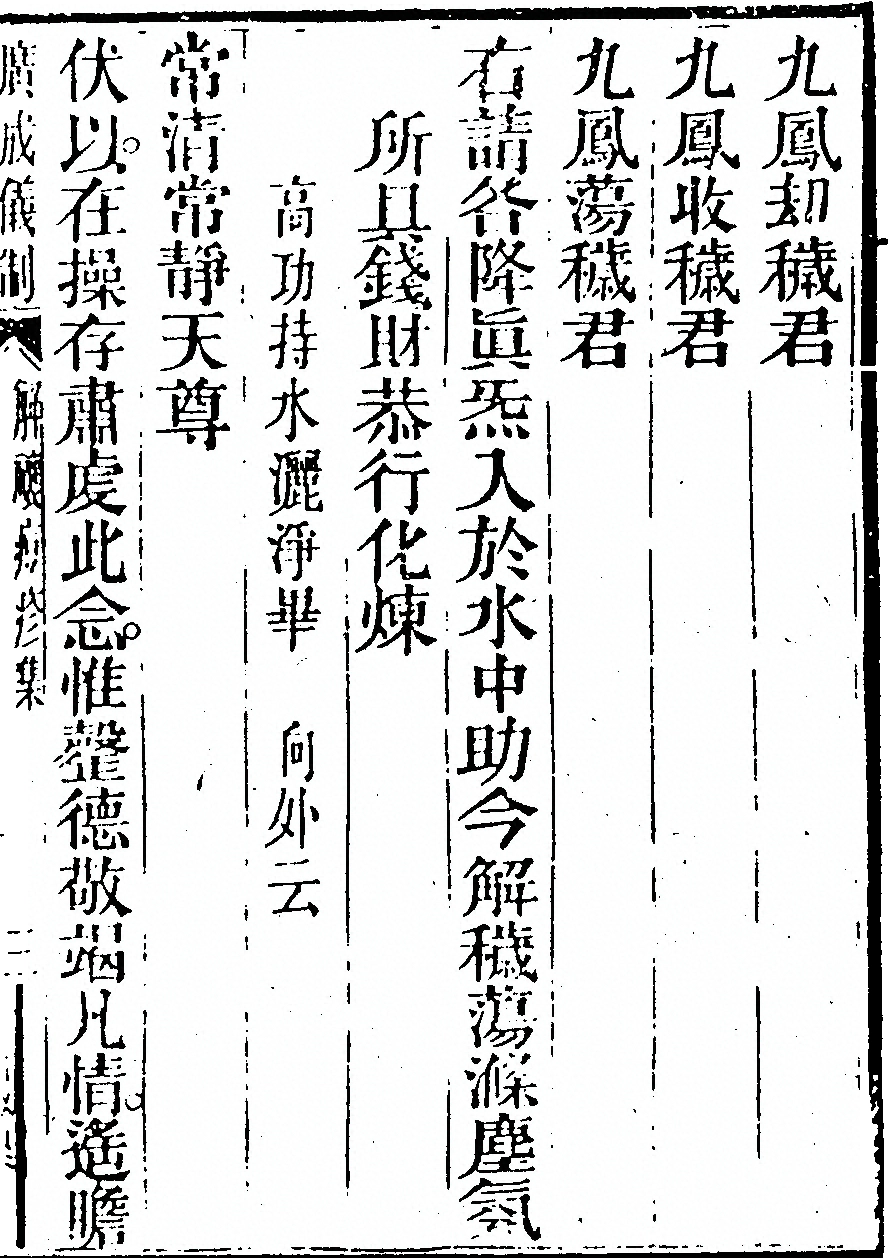 九鳳却穢君
九鳳收穢君
九鳳蕩穢君
右請各降眞炁入於水中助今解穢蕩滌塵氛
所具錢財恭行化煉
高功持水灑淨畢　向外云
常清常靜天尊
伏以。在操存肅虔此念。惟整德敬竭凡情。遙瞻
廣成儀制　解禳痘疹集　三